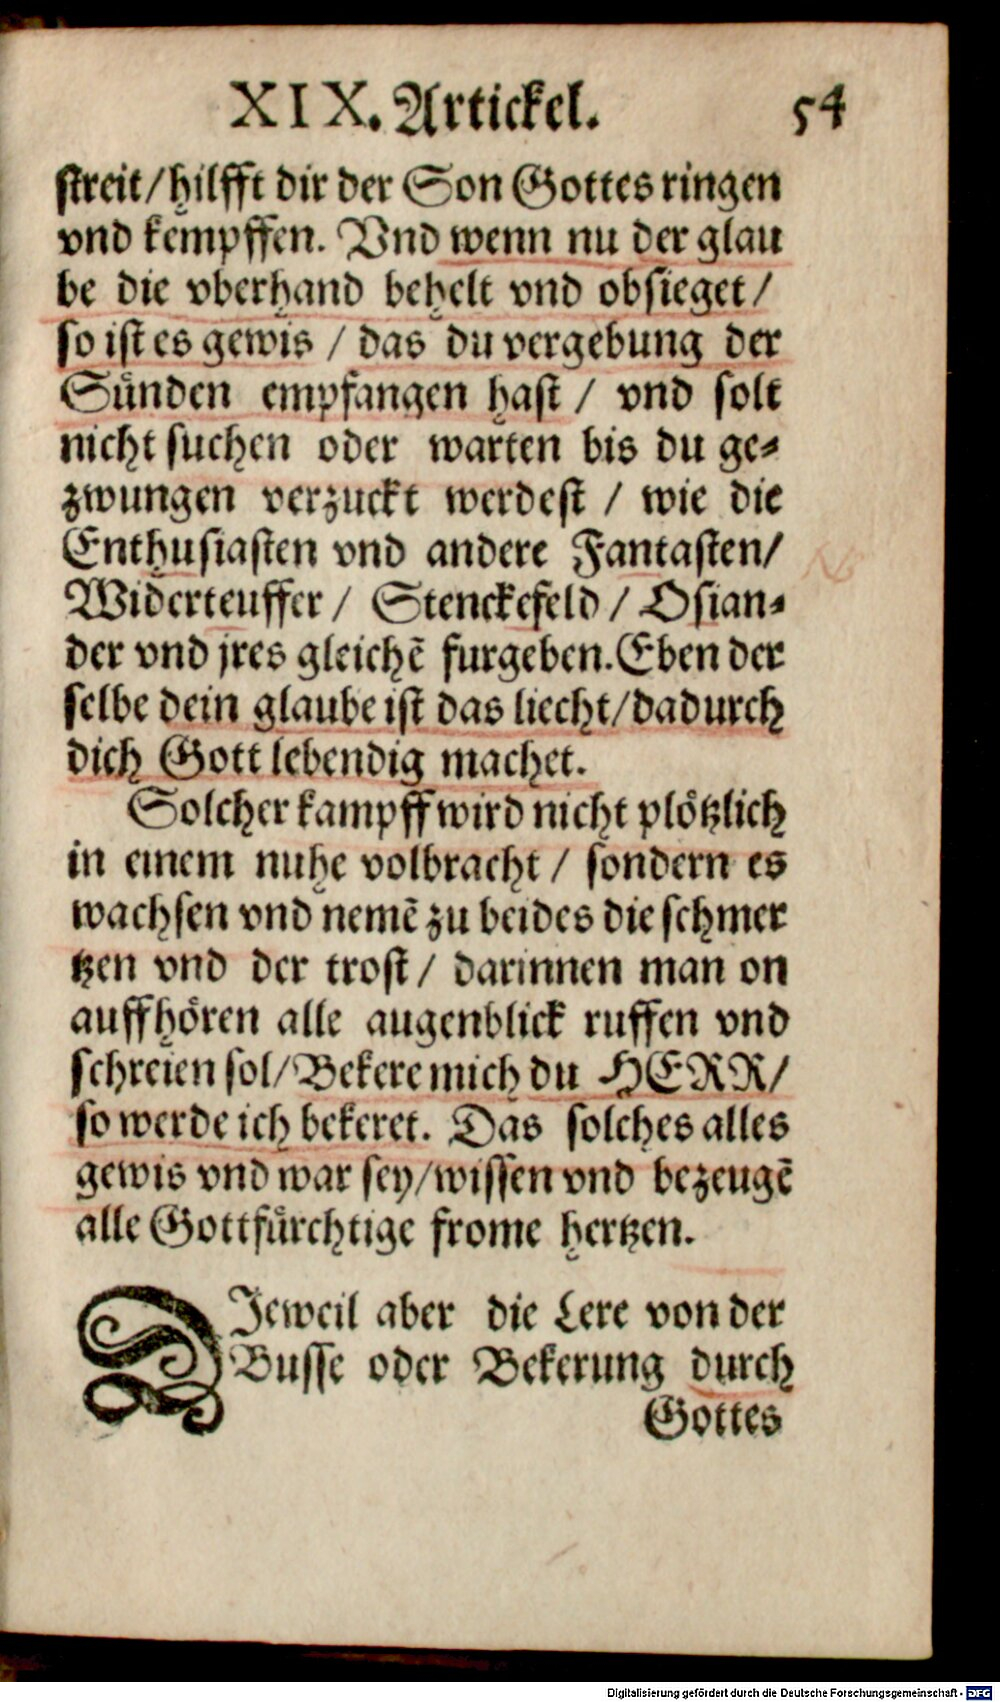 XIX. Artickel. 54
streit/hilfft dir der Son Gottes ringen
vnd kempffen. Vnd wenn nu der glau
be die vberhand behelt vnd obsieget/
so ist es gewis / das du vergebung der
Sünden empfangen hast / vnd solt
nicht suchen oder warten bis du ge-
zwungen verzuckt werdest / wie die
Enthusiasten vnd andere Fantasten/
Widerteuffer / Stenckefeld / Osian-
der vnd jres gleichē furgeben. Eben der
selbe dein glaube ist das liecht/dadurch
dich Gott lebendig machet.
Solcher kampff wird nicht plötzlich
in einem nuhe volbracht / sondern es
wachsen vnd nemē zu beides die schmer
tzen vnd der trost / darinnen man on
auffhören alle augenblick ruffen vnd
schreien sol/Bekere mich du HERR/
so werde ich bekeret. Das solches alles
gewis vnd war sey/wissen vnd bezeugē
alle Gottfürchtige frome hertzen.
DJeweil aber die Lere von der
Busse oder Bekerung durch
Gottes
Digitalisierung gefördert durch die Deutsche Forschungsgemeinschaft - DFG